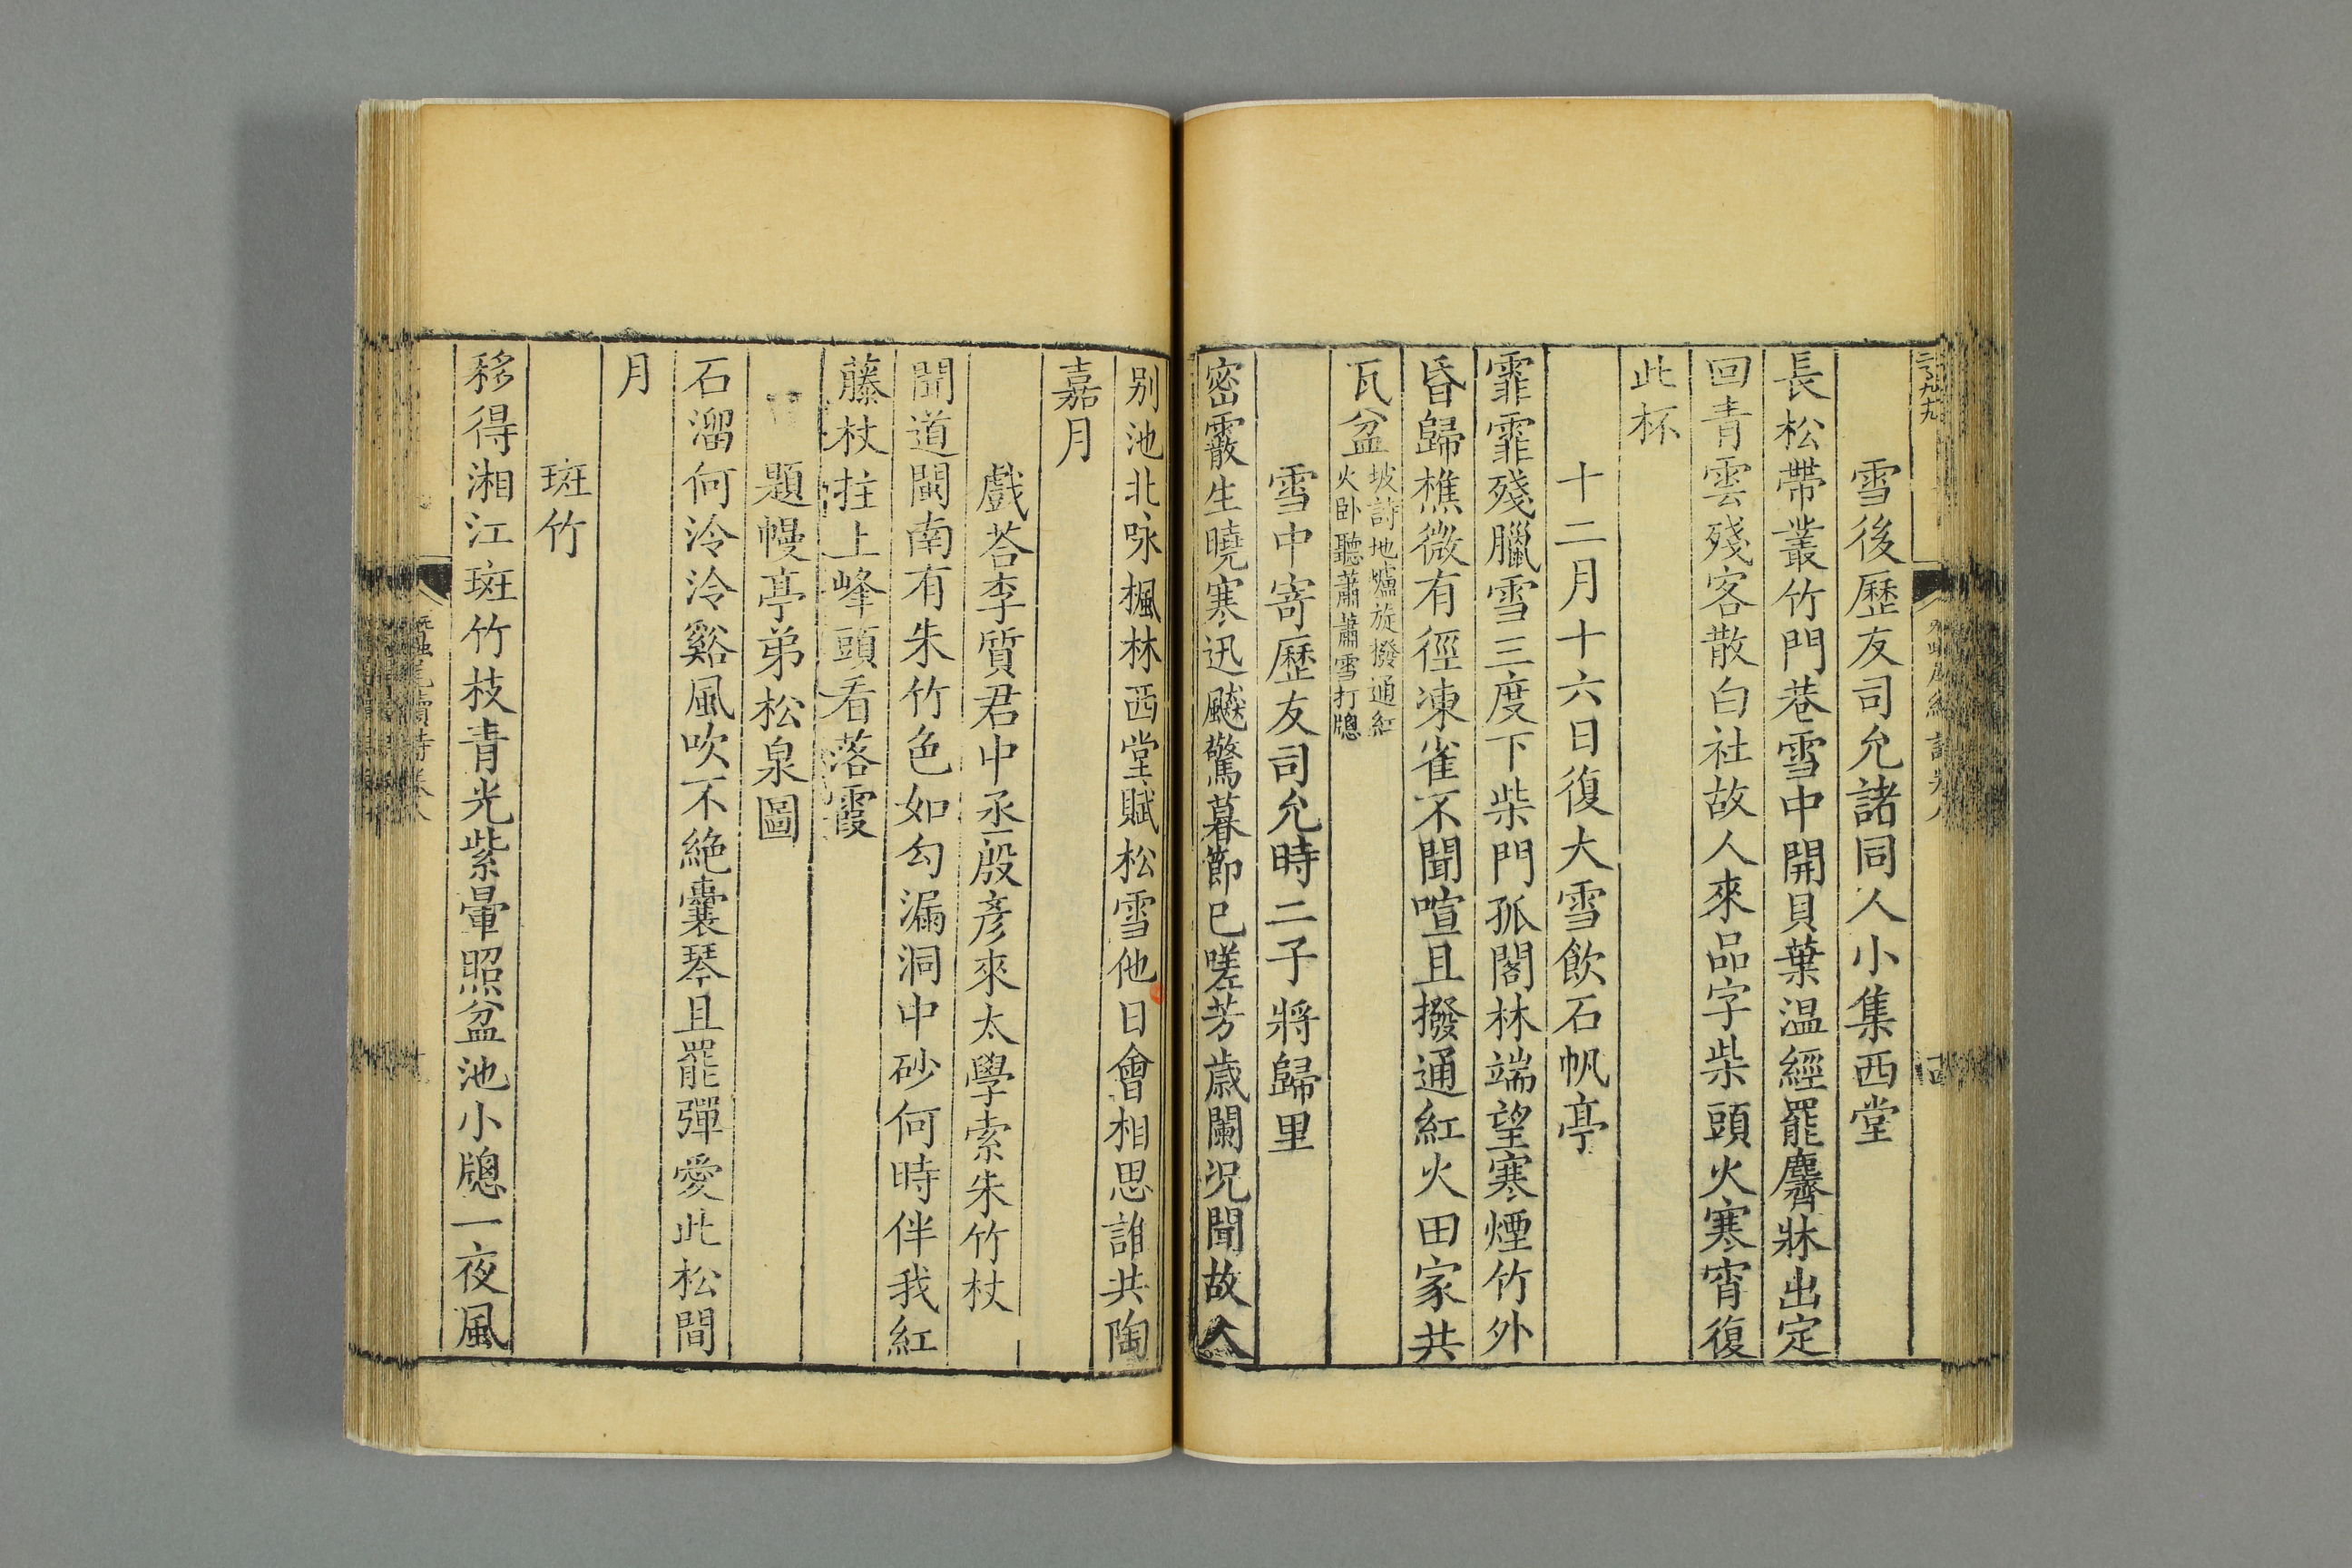 雪後歷友司允諸同人小集西堂
長松帶叢竹門巷雪中開貝葉温經罷麝牀出定
回青雲殘客散白社故人來品字柴頭火寒宵復
此杯
十二月十六日復大雪飲石帆亭
霏霏殘臘雪三度下柴門孤閣林端望寒煙竹外
昏歸樵微有徑凍雀不聞喧且撥通紅火田家共
瓦盆坡詩地爐旋撥通紅
火卧聽蕭蕭雪打牕
雪中寄歷友司允時二子將歸里
密霰生曉寒迅飈驚暮節已嗟芳歳闌况聞故人
别池北咏楓林西堂賦松雪他日會相思誰共陶
嘉月
戲荅李質君中丞殷彦來太學索朱竹杖
聞道閩南有朱竹色如勾漏洞中砂何時伴我紅
藤杖拄上峰頭看落霞
題幔亭弟松泉圖
石溜何泠泠谿風吹不絶囊琴且罷彈愛此松間
月
斑竹
移得湘江斑竹枝青光紫暈照盆池小牕一夜風